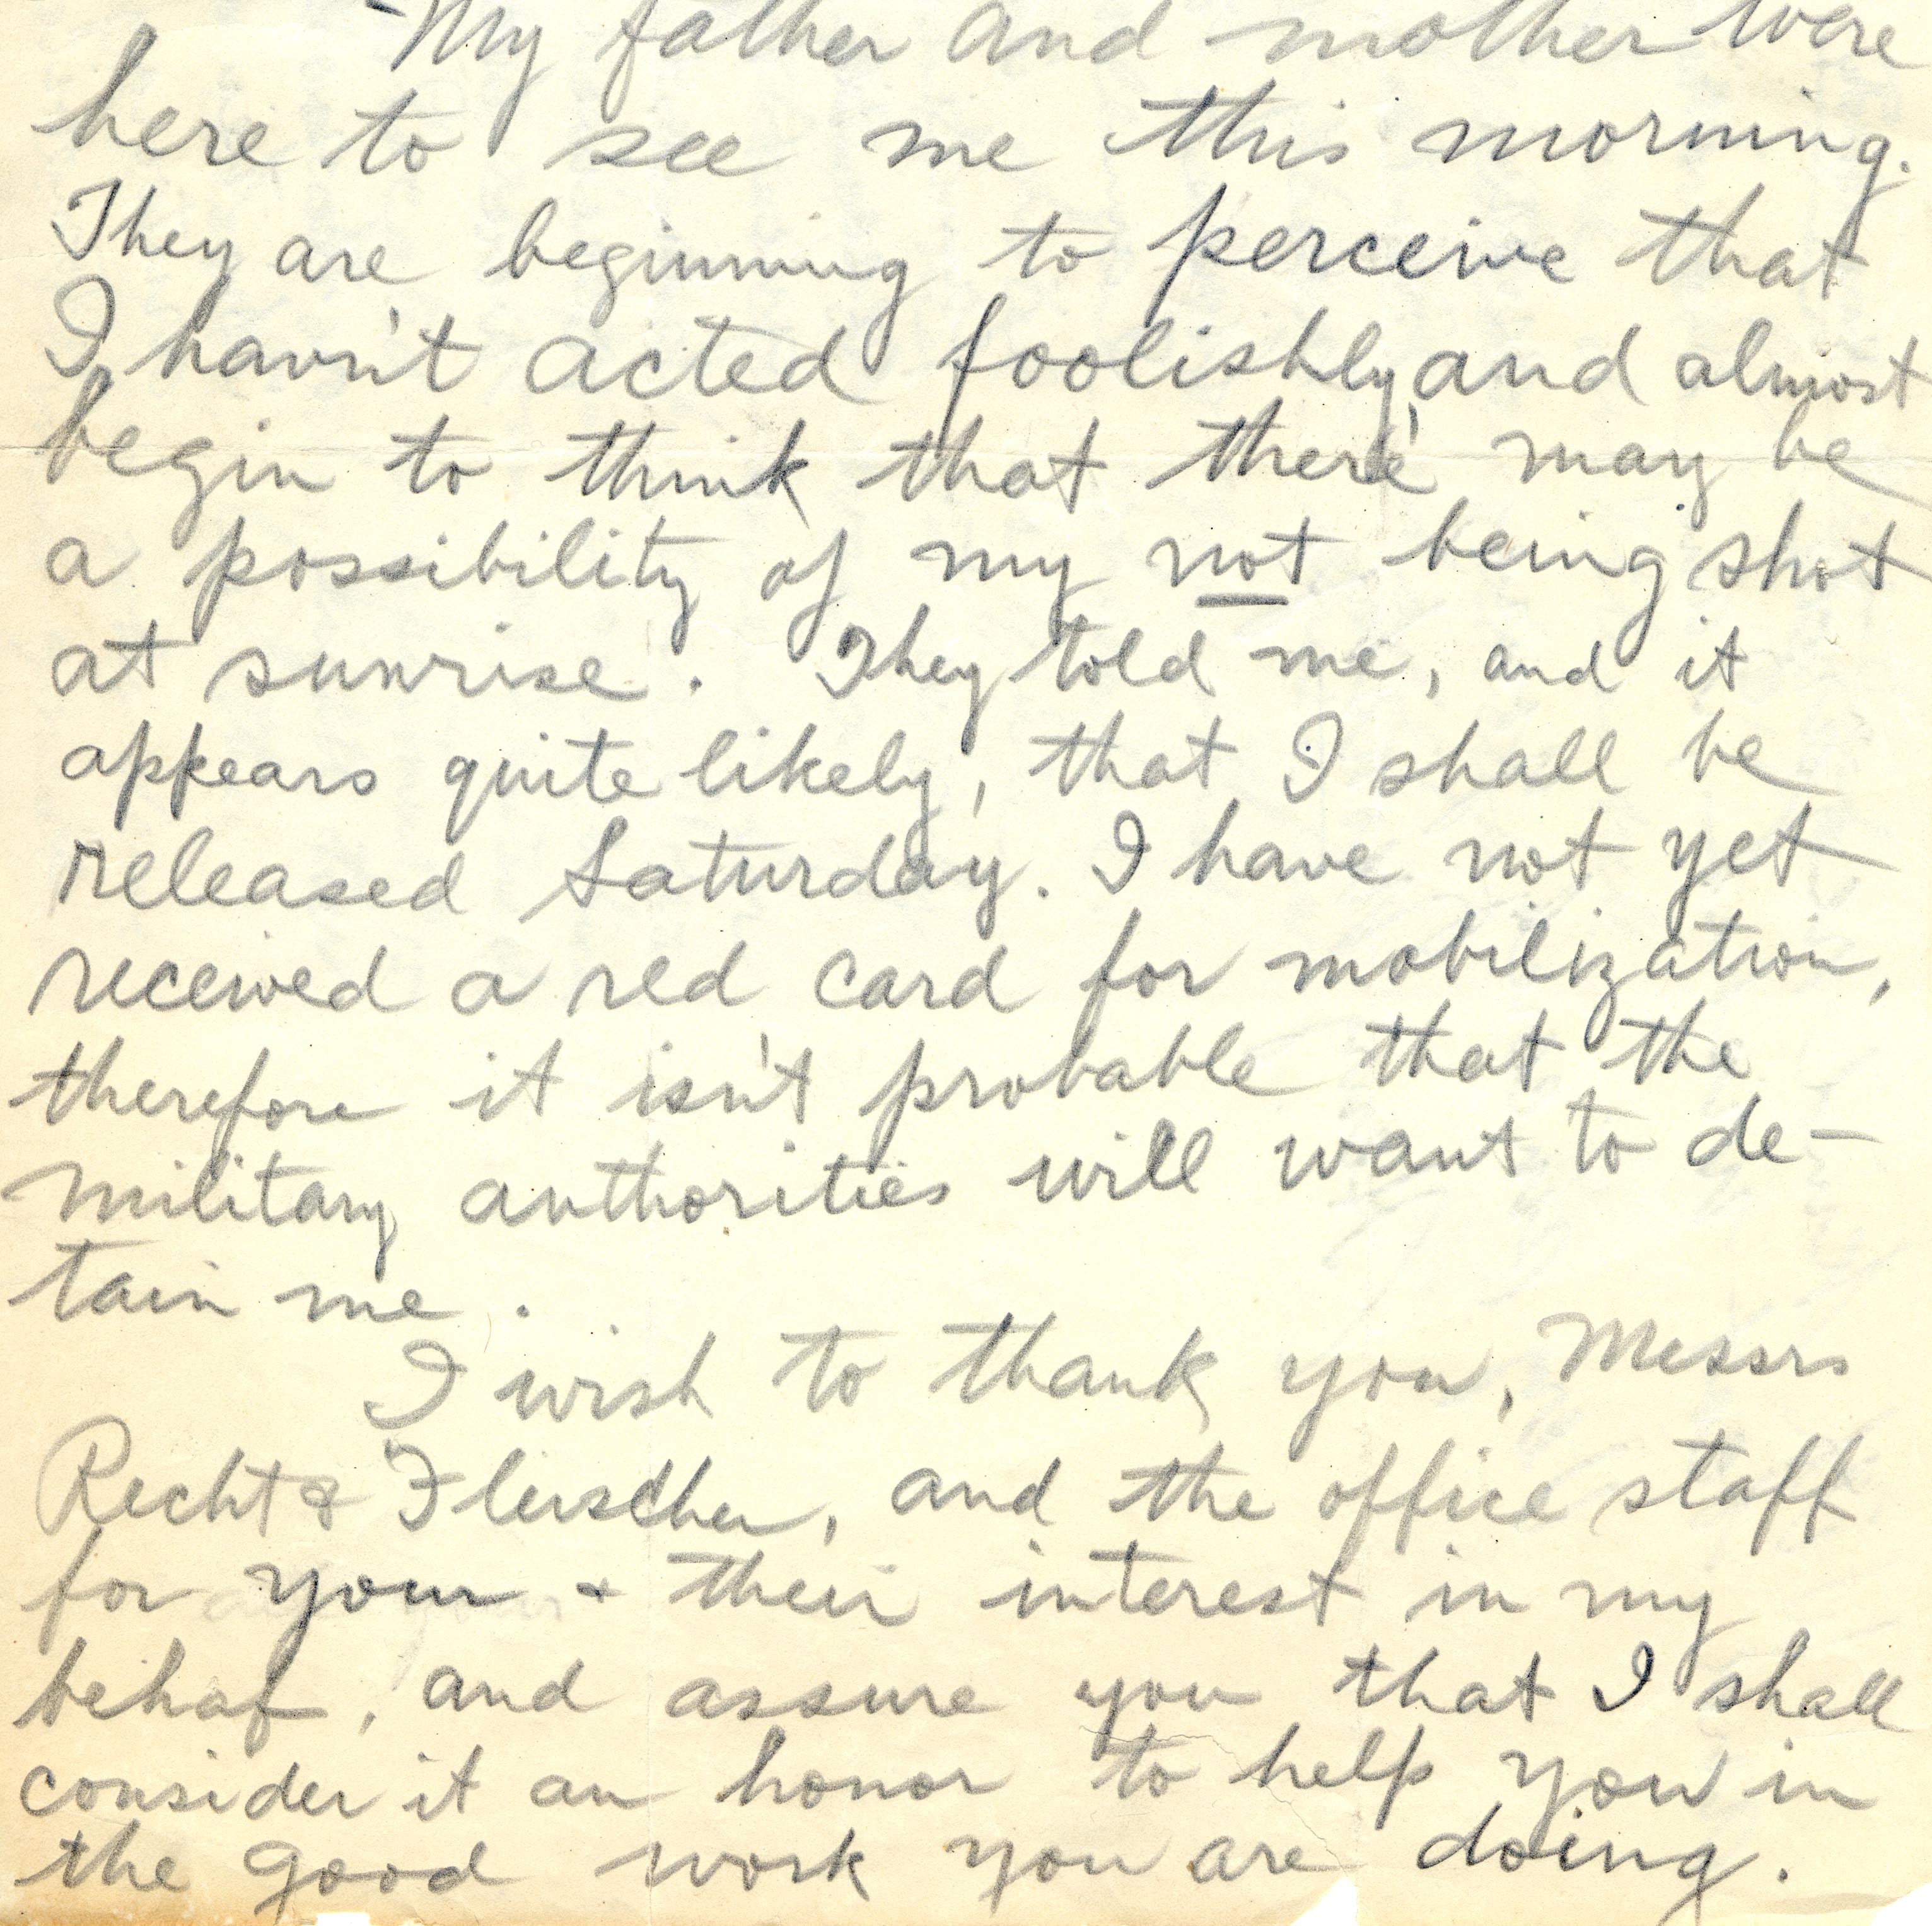 My father and mother were
here to see me this morning.
They are beginning to perceive that
I havn't acted foolishly, and almost
begin to think that there may be
a possibility of my not being shot
at sunrise. They told me, and it
appears quite likely, that I shall be
released Saturday. I have not yet
received a red card for mobilization,
therefore it isn't probable that the
military authorities will want to de-
tain me.
I wish to thank you, Messrs
Recht & Fleischer, and the office staff
for your & their interest in my
behaf, and assure you that I shall
consider it an honor to help you in
the good work you are doing.